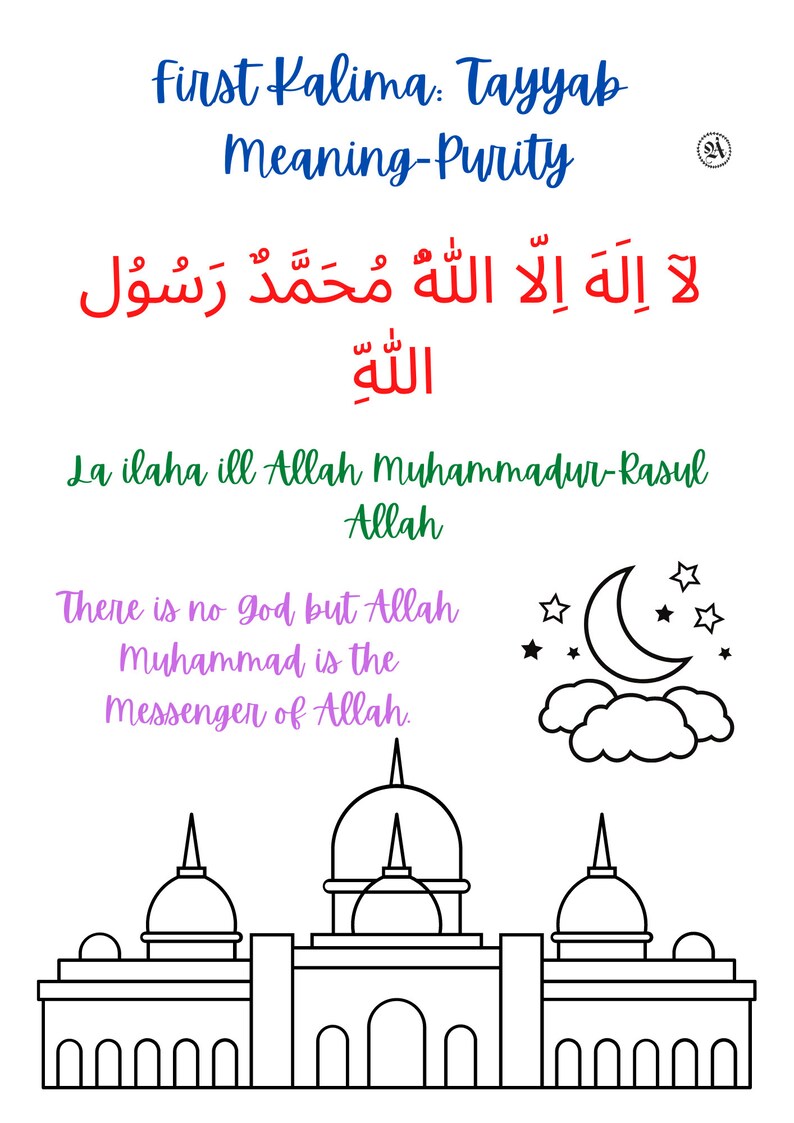 First Kalima: Tayyab
Meaning-Purity
لَآ اِلَهَ اِلّا اللّٰهُ مُحَمَّدٌ رَسُوُل
اللّٰهِّ
La ilaha ill Allah Muhammadur-Rasul
Allah
There is no God but Allah
Muhammad is the
Messenger of Allah.